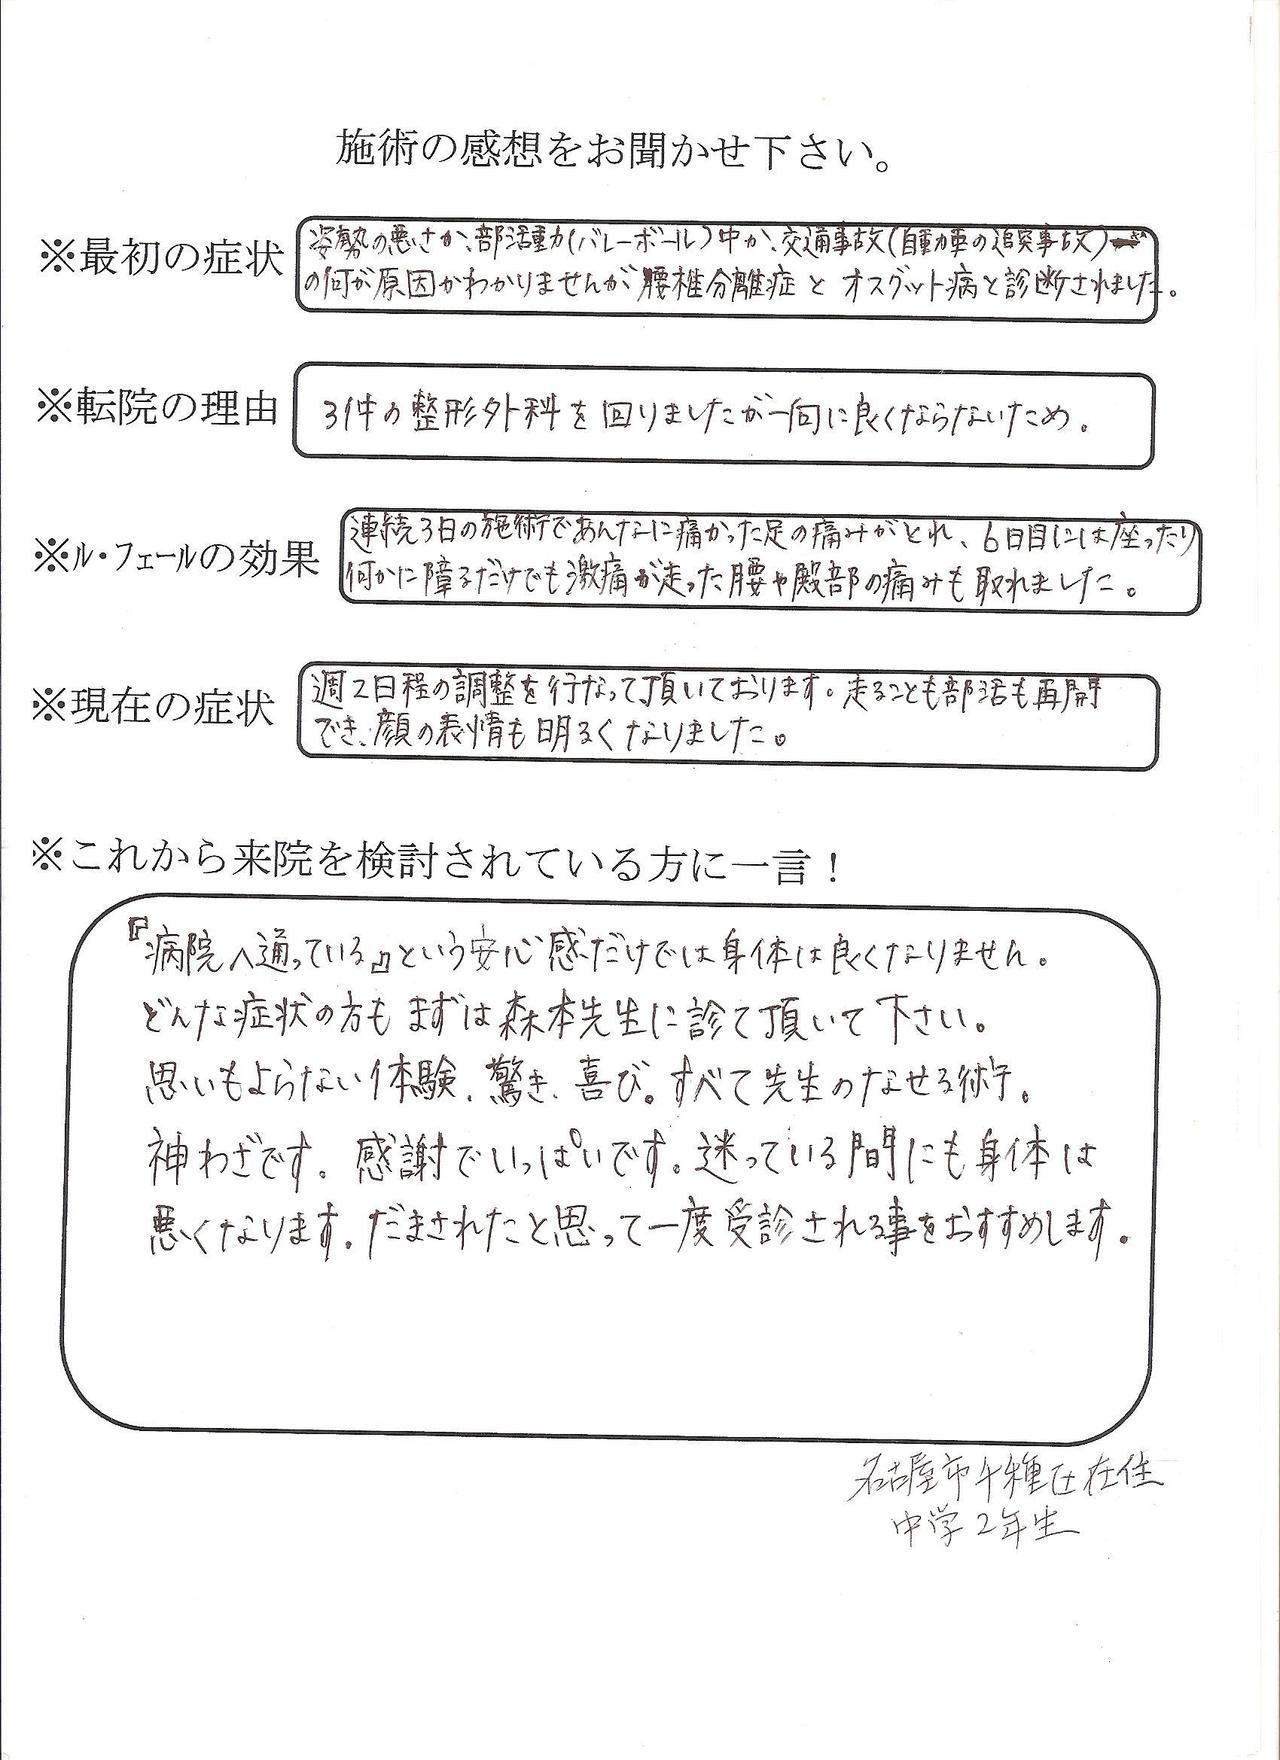 施術の感想をお聞かせ下さい。
※最初の症状
姿勢の悪さか、部活動(バレーボール)中か、交通事故(自動車の追突事故)
の何が原因かわかりませんが腰椎分離症とオスグット病と診断されました。
※転院の理由
3件の整形外科を回りましたが一向に良くならないため。
※ル・フェールの効果
連続3日の施術であんなに痛かった足の痛みがとれ、6日目には座ったり
何かに障るだけでも激痛が走った腰や殿部の痛みも取れました。
※現在の症状
週2日程の調整を行なって頂いております。走ることも部活も再開
でき、顔の表情も明るくなりました。
※これから来院を検討されている方に一言！
『病院へ通っている』という安心感だけでは身体は良くなりません。
どんな症状の方もまずは森本先生に診て頂いて下さい。
思いもよらない体験、驚き、喜び。すべて先生のなせる術。
神わざです。感謝でいっぱいです。迷っている間にも身体は
悪くなります。だまされたと思って一度受診される事をおすすめします。
名古屋市千種区在住
中学2年生